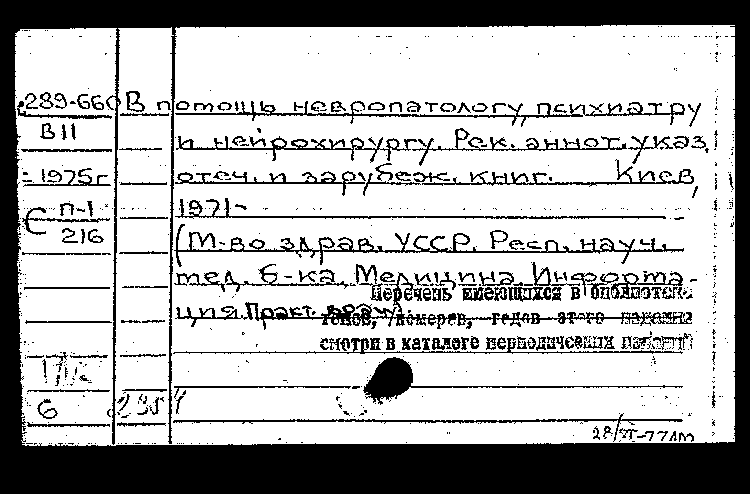 289-660 В помощь невропатологу, психиатру
В11 и нейрохирургу. Рек. аннот. указ.
-1975г отеч. и зарубеж. книг. Киев,
С П-1/216 1971-
(М-во здрав. УССР. Респ. науч.
мед. б-ка. Медицина. Информа-
ция. Практ. врач)
Перечень имеющихся в библиотеке
томов, номеров, годов этого издания
смотри в каталоге периодических изданий
6 2354
28/VI-77